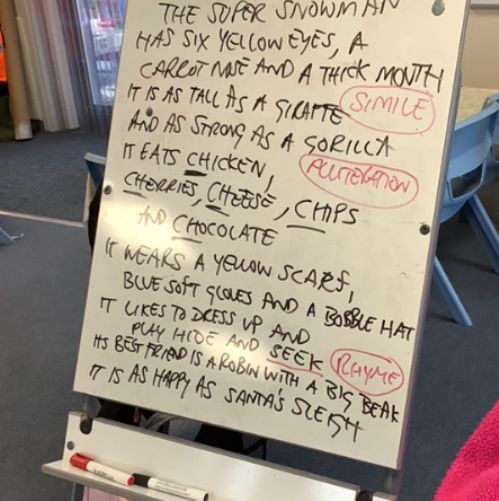 THE SUPER SNOWMAN
HAS SIX YELLOW EYES, A
CARROT NOSE AND A THICK MOUTH
IT IS AS TALL AS A GIRAFFE SIMILE
AND AS STRONG AS A GORILLA
IT EATS CHICKEN, ALLITERATION
CHERRIES, CHEESE, CHIPS
AND CHOCOLATE
IT WEARS A YELLOW SCARF,
BLUE SOFT GLOVES AND A BOBBLE HAT
IT LIKES TO DRESS UP AND
PLAY HIDE AND SEEK RHYME
ITS BEST FRIEND IS A ROBIN WITH A BIG BEAK
IT IS AS HAPPY AS SANTA'S SLEIGH